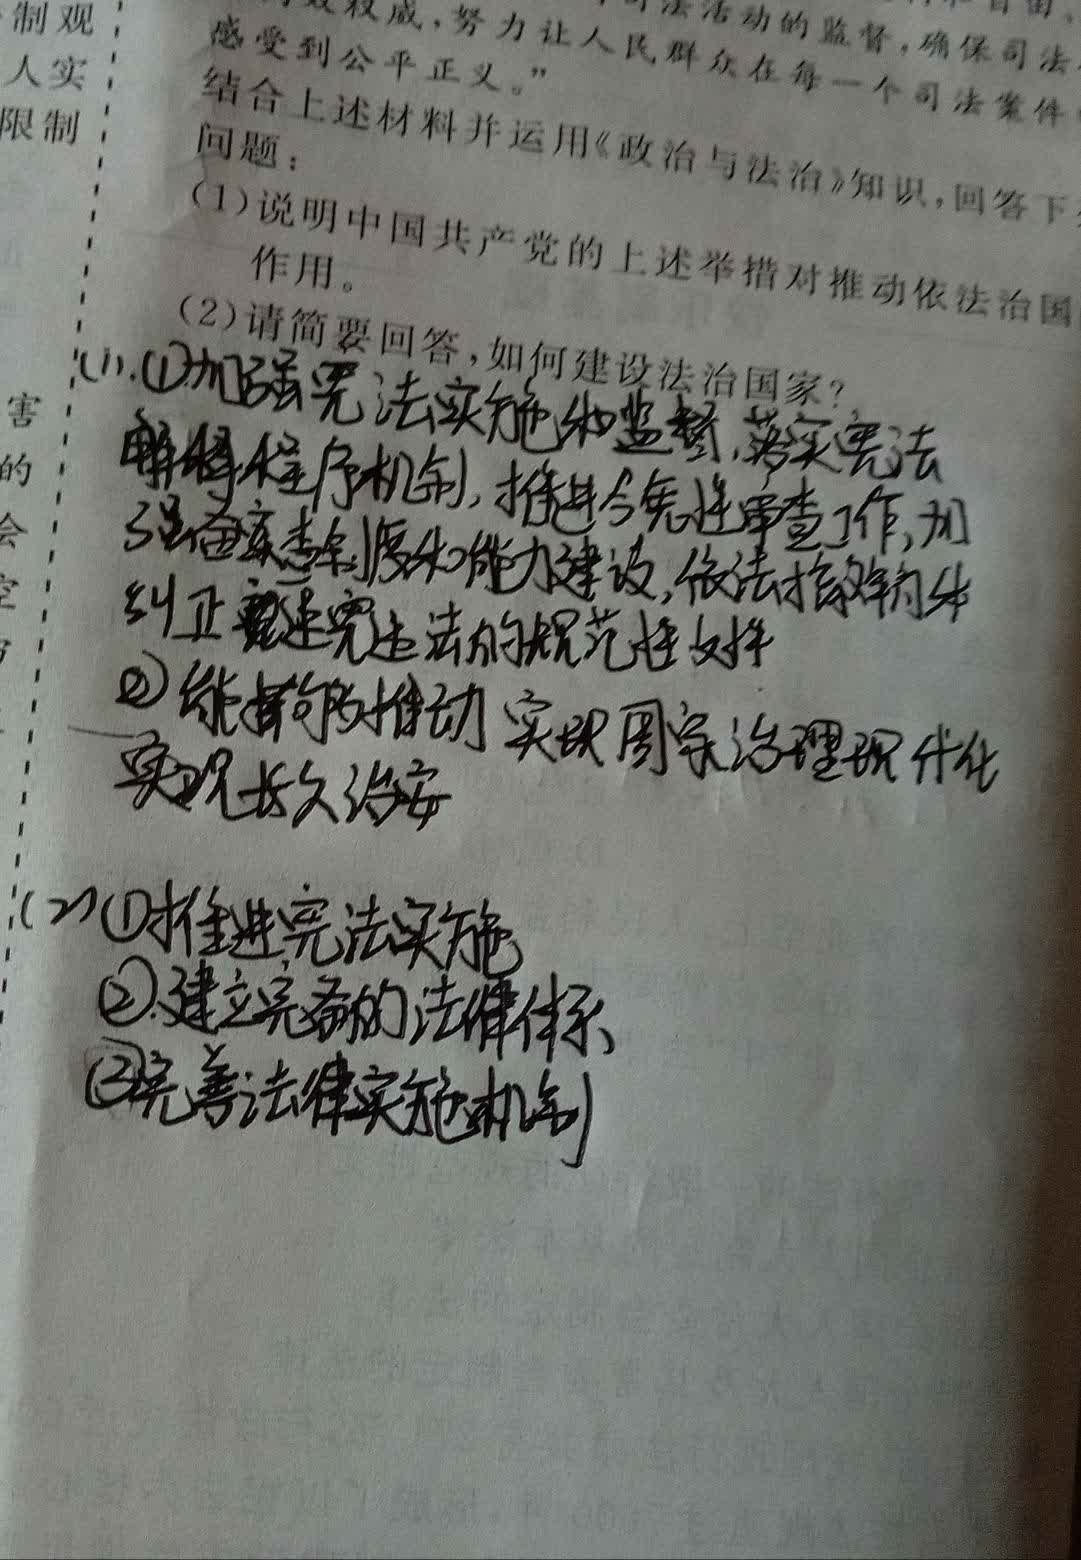 制观
人实
限制
害
的
会
权威,努力让人民群众在每一个司法案件
司法活动的监督,确保司法
感受到公平正义。”
结合上述材料并运用《政治与法治》知识,回答下
问题:
(1)说明中国共产党的上述举措对推动依法治国
作用。
(2)请简要回答,如何建设法治国家?
(1).①加强宪法实施和监督,落实宪法
解释程序机制,推进合宪性审查工作,加
强备案审查制度和能力建设,依法撤销和
纠正违宪违法的规范性文件
②能够推动实现国家治理现代化
实现长久治安
(2)①推进宪法实施
②.建立完备的法律体系、
③完善法律实施机制